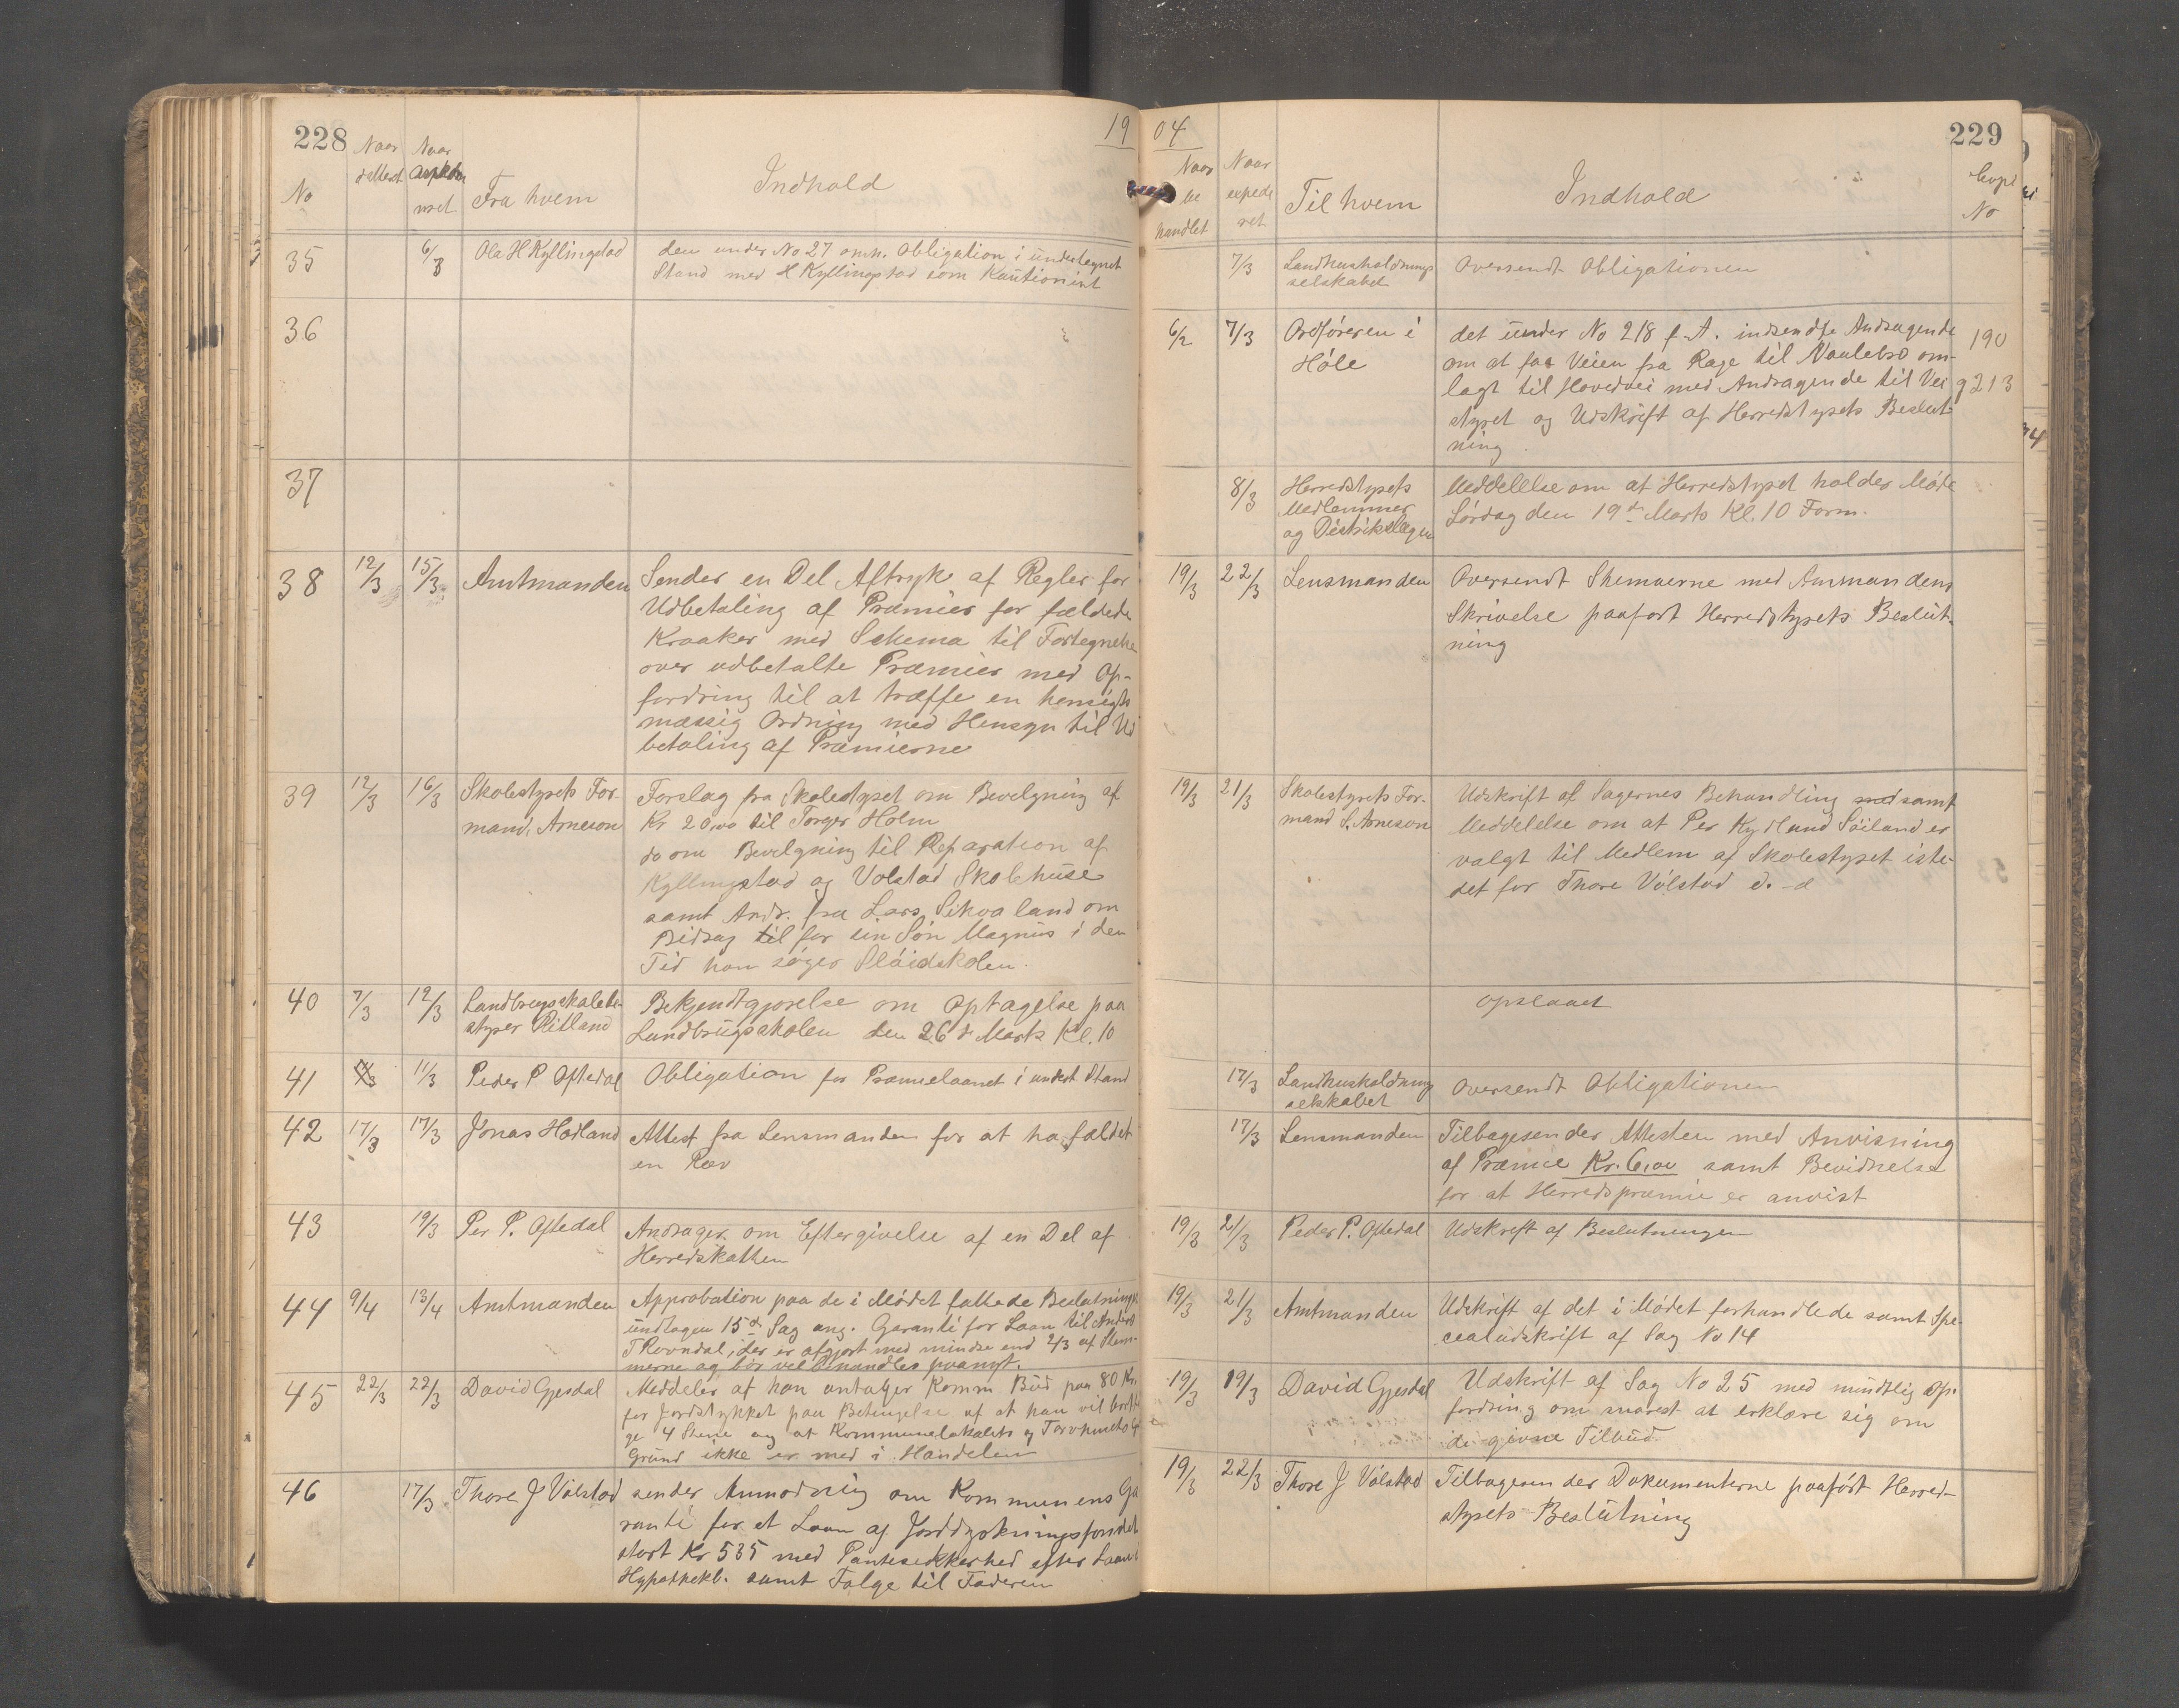 228
19
No
Naar
dattert
Naar
Fra hvem
Indhold
35
6/3
Ola H Kyllingstad
den under No 27 omh. Obligation i undertegnet
Stand med H Kyllingstad som Kautionist
36
37
38
12/3
15/3
Amtmanden
Sender en Del Aftryk af Regler for
Udbetaling af Præmier for fældede
Kraaker med Schema til Fortegnelse
over udbetalte Præmier med Op-
fordring til at træffe en hensigts
mæssig Ordning med Hensyn til Ud
betaling af Præmierne
39
12/3
16/3
Skolestyrets For-
mand, Arneson
Forslag fra Skolestyret om Bevilgning af
Kr 20,00 til Torger Holm
do om Bevilgning til Reparation af
Kyllingstad og Volstad Skolehuse
samt Andr. fra Lars Sikvaland om
Bidrag til for sin Søn Magnus i den
Tid han søger Sløidskolen.
40
7/3
12/3
Landbrugsskolebe-
styrer Ritland
Bekjendtgjørelse om Optagelse paa
Landbrugsskolen den 26de Marts Kl. 10
41
11/3
Peder P Oftedal
Obligation for Præmielaanet i undert Stand
42
17/3
17/3
Jonas Hadland
Attest fra Lensmanden for at ha fældet
en Ræv
43
19/3
Per P. Oftedal
Andrager om Eftergivelse af en Del af
Herredskatten
44
9/4
13/4
Amtmanden
Approbation paa de i Mødet fattede Beslutninger
undtagen 15de Sag ang. Garanti for Laan til Anders
T Ravndal, der er afgjort med mindre end 2/3 af Stem-
merne og bør vel behandles paanyt.
45
22/3
22/3
David Gjesdal
Meddeler at han antager Komm Bud paa 80 Kr.
for Jordstykket paa Betingelse af at han vil
ge 4 Stene og at Kommunelokalets og
Grund ikke er med i Handelen
46
17/3
Thore J Volstad
sender Anmodning om Kommunens Ga
ranti for et Laan af Jorddyrkningsfondet
stort Kr 535 med Pantesikkerhed efter Laan i
Hypothekb. samt Følge til Faderen
04
229
Naar
be
handlet
Naar
expede
ret
Til hvem
Indhold
No
7/3
Landhusholdnings
selskabet
Oversendt Obligationen
6/2
7/3
Ordføreren i
Høle
det under No 218 f. A. indsendte Andragende
om at faa Veien fra Rage til om-
lagt til Hovedvei med Andragende til Vei
styret og Udskrift af Herredstyrets Beslut-
ning.
190
g 213
8/3
Herredstyrets
Medlemmer
og Distrikslægen
Meddelelse om at Herredstyret holder Møde
Lørdag den 19de Marts Kl. 10 Form.
19/3
22/3
Lensmanden
Oversendt Skemaerne med Ammandens
Skrivelse paaført Herredstyrets Beslut-
ning
19/3
21/3
Skolestyrets For-
mand S. Arneson
Udskrift af Sagernes Behandling med samt
Meddelelse om at Per Kydland Søiland er
valgt til Medlem af Skolestyret iste-
det for Thore Volstad d. -d
opslaaet
17/3
Landhusholdning
selskabet
Oversendt Obligationen
17/3
Lensmanden
Tilbagesender Attesten med Anvisning
af Præmie Kr. 6,00 samt Bevidnelse
for at Herredspræmie er anvist
19/3
21/3
Peder P. Oftedal
Udskrift af Beslutningen
19/3
21/3
Amtmanden
Udskrift af det i Mødet forhandlede samt Spe-
cialudskrift af Sag No 14
19/3
19/3
David Gjesdal
Udskrift af Sag No 25 med mundtlig Op-
fordring om snarest at erklære sig om
de givne Tilbud
19/3
22/3
Thore J Volstad
Tilbagesender Dokumenterne paaført Herred-
styrets Beslutning